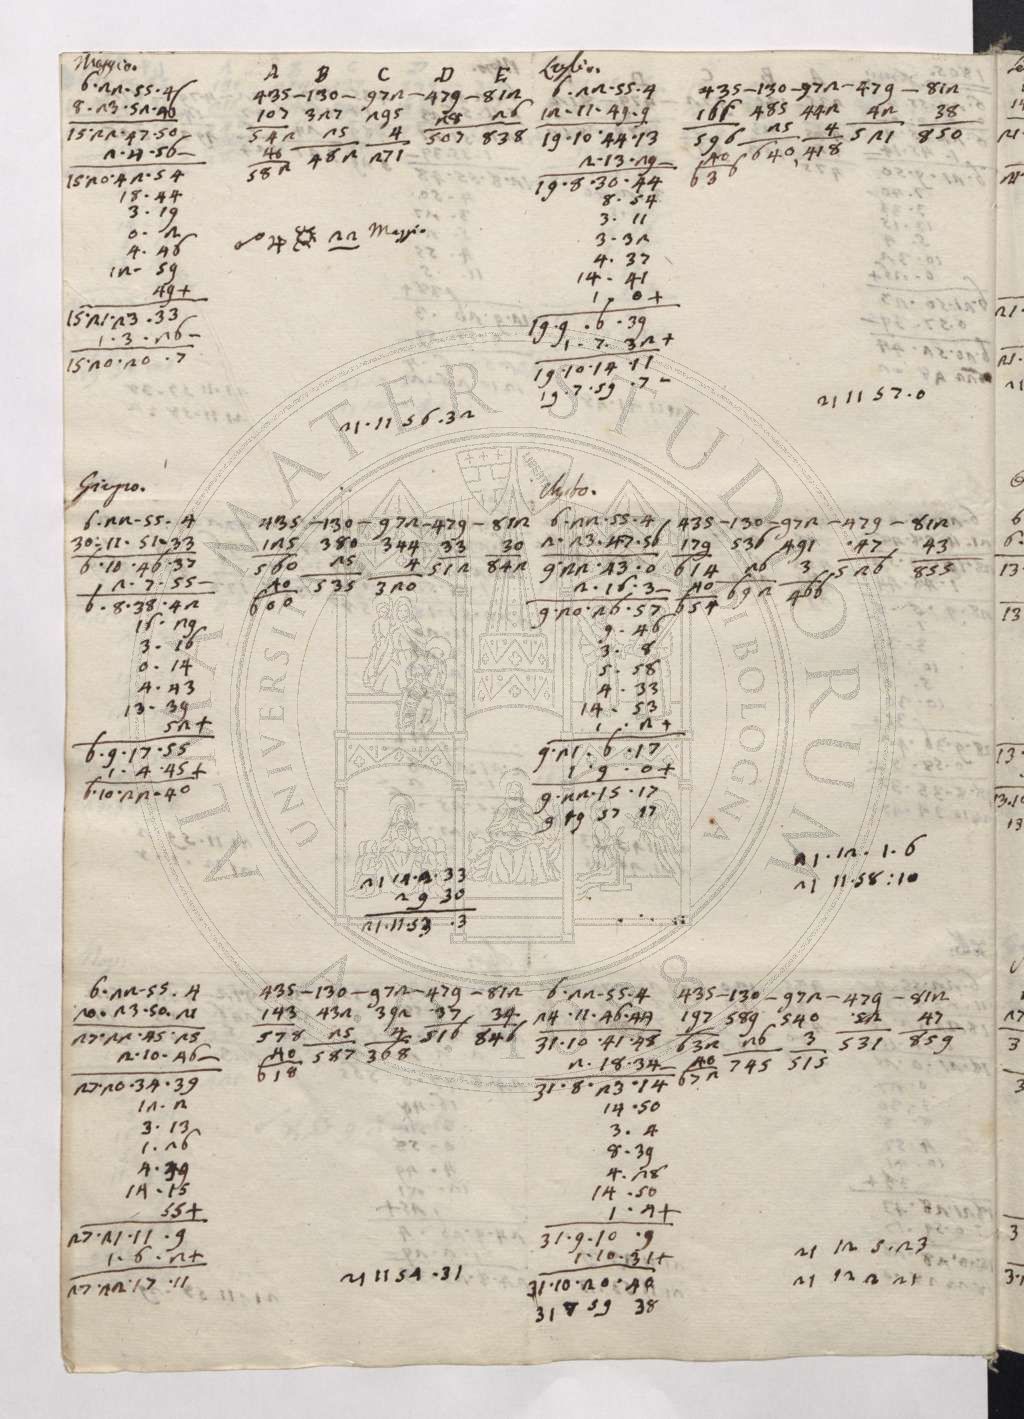 Maggio.
6·22·55·4
8·23·52·46
15·22·47·50
2·4·56−
15·20·42·54
18·44
3·19
0·2
4·46
12·59
49+
15·21·23·33
1·3·26−
15·20·20·7
A B C D E
435−130−972−479−812
107 327 295 28 26
542 25 4 507 838
40 482 271
582
☍ ♃ ☼ 22 Maggio
21·11 56·32
Luglio.
6·22·55·4
12·11·49·9
19·10·44·13
2·13·29−
19·8·30·44
8·54
3·11
3·32
4·37
14·41
1·0+
19·9·6·39
1·7·32+
19·10·14·11
19·7·59·7−
435−130−972−479−812
161 485 442 42 38
596 25 4 521 850
40 640 418
636
21 11 57·0
Giugno.
6·22·55·4
30·11·51·33
6·10·46·37
2·7·55−
6·8·38·42
16·29
3·16
0·14
4·43
13·39
52+
6·9·17·55
1·4·45+
6·10·22·40
435−130−972−479−812
125 380 344 33 30
560 25 4 512 842
40 535 320
600
21 12·2·33
2 9 30
21·11·53·3
Agosto.
6·22·55·4
2·23·47·56
9·22·43·0
2·16·3−
9·20·26·57
9·46
3·8
5·58
4·33
14·53
1·2+
9·21·6·17
1·9·0+
9·22·15·17
9 19 57 17
435−130−972−479−812
179 536 491 ·47 43
614 26 3 526 855
40 692 466
654
21·12·1·6
21 11·58:10
6·22·55·4
20·23·50·21
27·22·45·25
2·10·46−
27·20·34·39
12·2
3·13
1·26
4·39
14·15
55+
27·21·11·9
1·6·2+
27·22·17·11
435−130−972−479−812
143 432 392 37 34
578 25 4 516 846
40 587 368
618
21 11 54·31
6·22·55·4
24·11·46·44
31·10·41·48
2·18·34−
31·8·23·14
14·50
3·4
8·39
4·28
14·50
1·4+
31·9·10·9
1·10·31+
31·10·20·40
31 7 59 38
435−130−972−479−812
197 589 540 52 47
632 26 3 531 859
40 745 515
672
21 12 5·23
21 12 2 21
ALMA MATER STUDIORUM
UNIVERSITÀ DI BOLOGNA